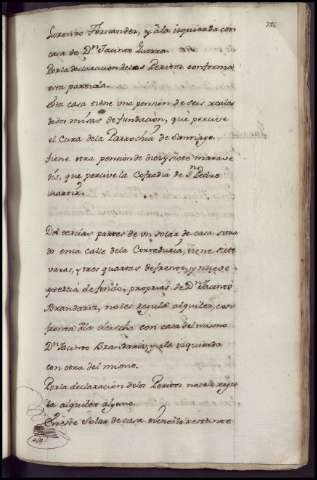 Lorenzo Fernandez, y â la izquierda con
casa de Dn. Jacinto
Por la declaracion de los Peritos conforma
esta partida.
Esta casa tiene una pension de seis reales
de dos misas de fundacion, que percive
el Cura de la Parrochia de Santiago.
Tiene otra pension de diez y siete marave
dis, que percive la Cofradia de Sn. Pedro
Martir.
Dos tercias partes de un solar de casa situa
do en la calle de la Corredurîa, tiene siete
varas, y tres quartas de frente, y nueve
y tercia de fondo, propias de Dn. Jacinto
Brandariz, no les regula alquiler, con
fronta âla derecha con casa del mismo
Dn. Jacinto Brandariz, y âla izquierda
con otra del mismo.
Por la declaracion de los Peritos no se regu
la alquiler alguno.
En este Solar de casa